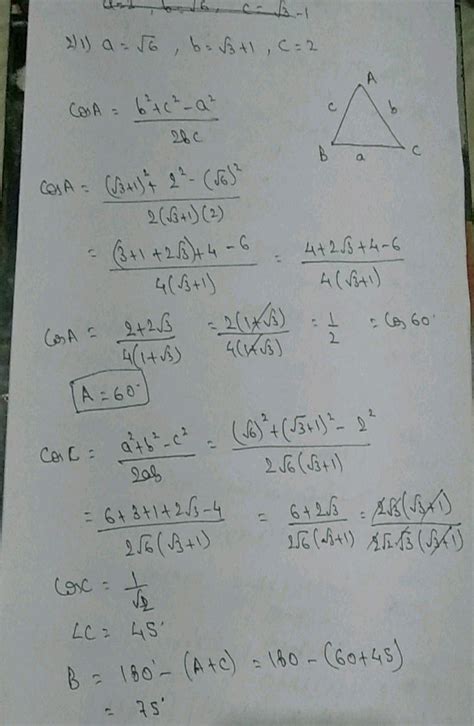 a=2, b=√6, c=√3-1
2)1) a=√6, b=√3+1, c=2
A
c b
B a C
CosA = (b²+c²-a²)/(2bc)
CosA = ((√3+1)²+2²-(√6)²)/(2(√3+1)(2))
= ((3+1+2√3)+4-6)/(4(√3+1)) = (4+2√3+4-6)/(4(√3+1))
CosA = (2+2√3)/(4(1+√3)) = (2(1+√3))/(4(1+√3)) = 1/2 = Cos60°
A=60°
CosC = (a²+b²-c²)/(2ab) = ((√6)²+(√3+1)²-2²)/(2√6(√3+1))
= (6+3+1+2√3-4)/(2√6(√3+1)) = (6+2√3)/(2√6(√3+1)) = (2√3(√3+1))/(2√2√3(√3+1))
CosC = 1/√2
∠C = 45°
B = 180°-(A+C) = 180-(60+45)
= 75°